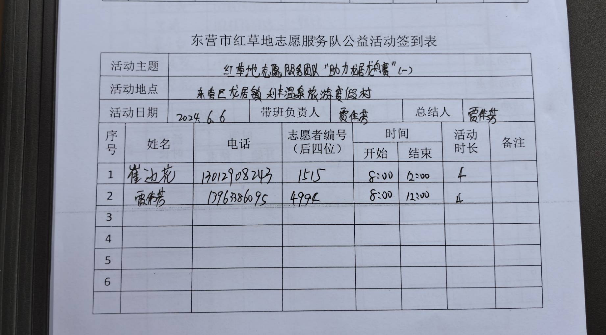 东营市红草地志愿服务队公益活动签到表
活动主题 红草地志愿服务团队"助力龙居" (一)
活动地点 东营区龙居镇 温泉旅游度假村
活动日期 2024.6.6 带班负责人 雷 芳 总结人 雷 芳
序号 姓名 电话 志愿者编号（后四位） 时间 活动时长 备注
开始 结束
1 崔 花 13012908243 1515 8:00 12:00 4
2 雷 芳 4994 8:00 12:00 4
3
4
5
6